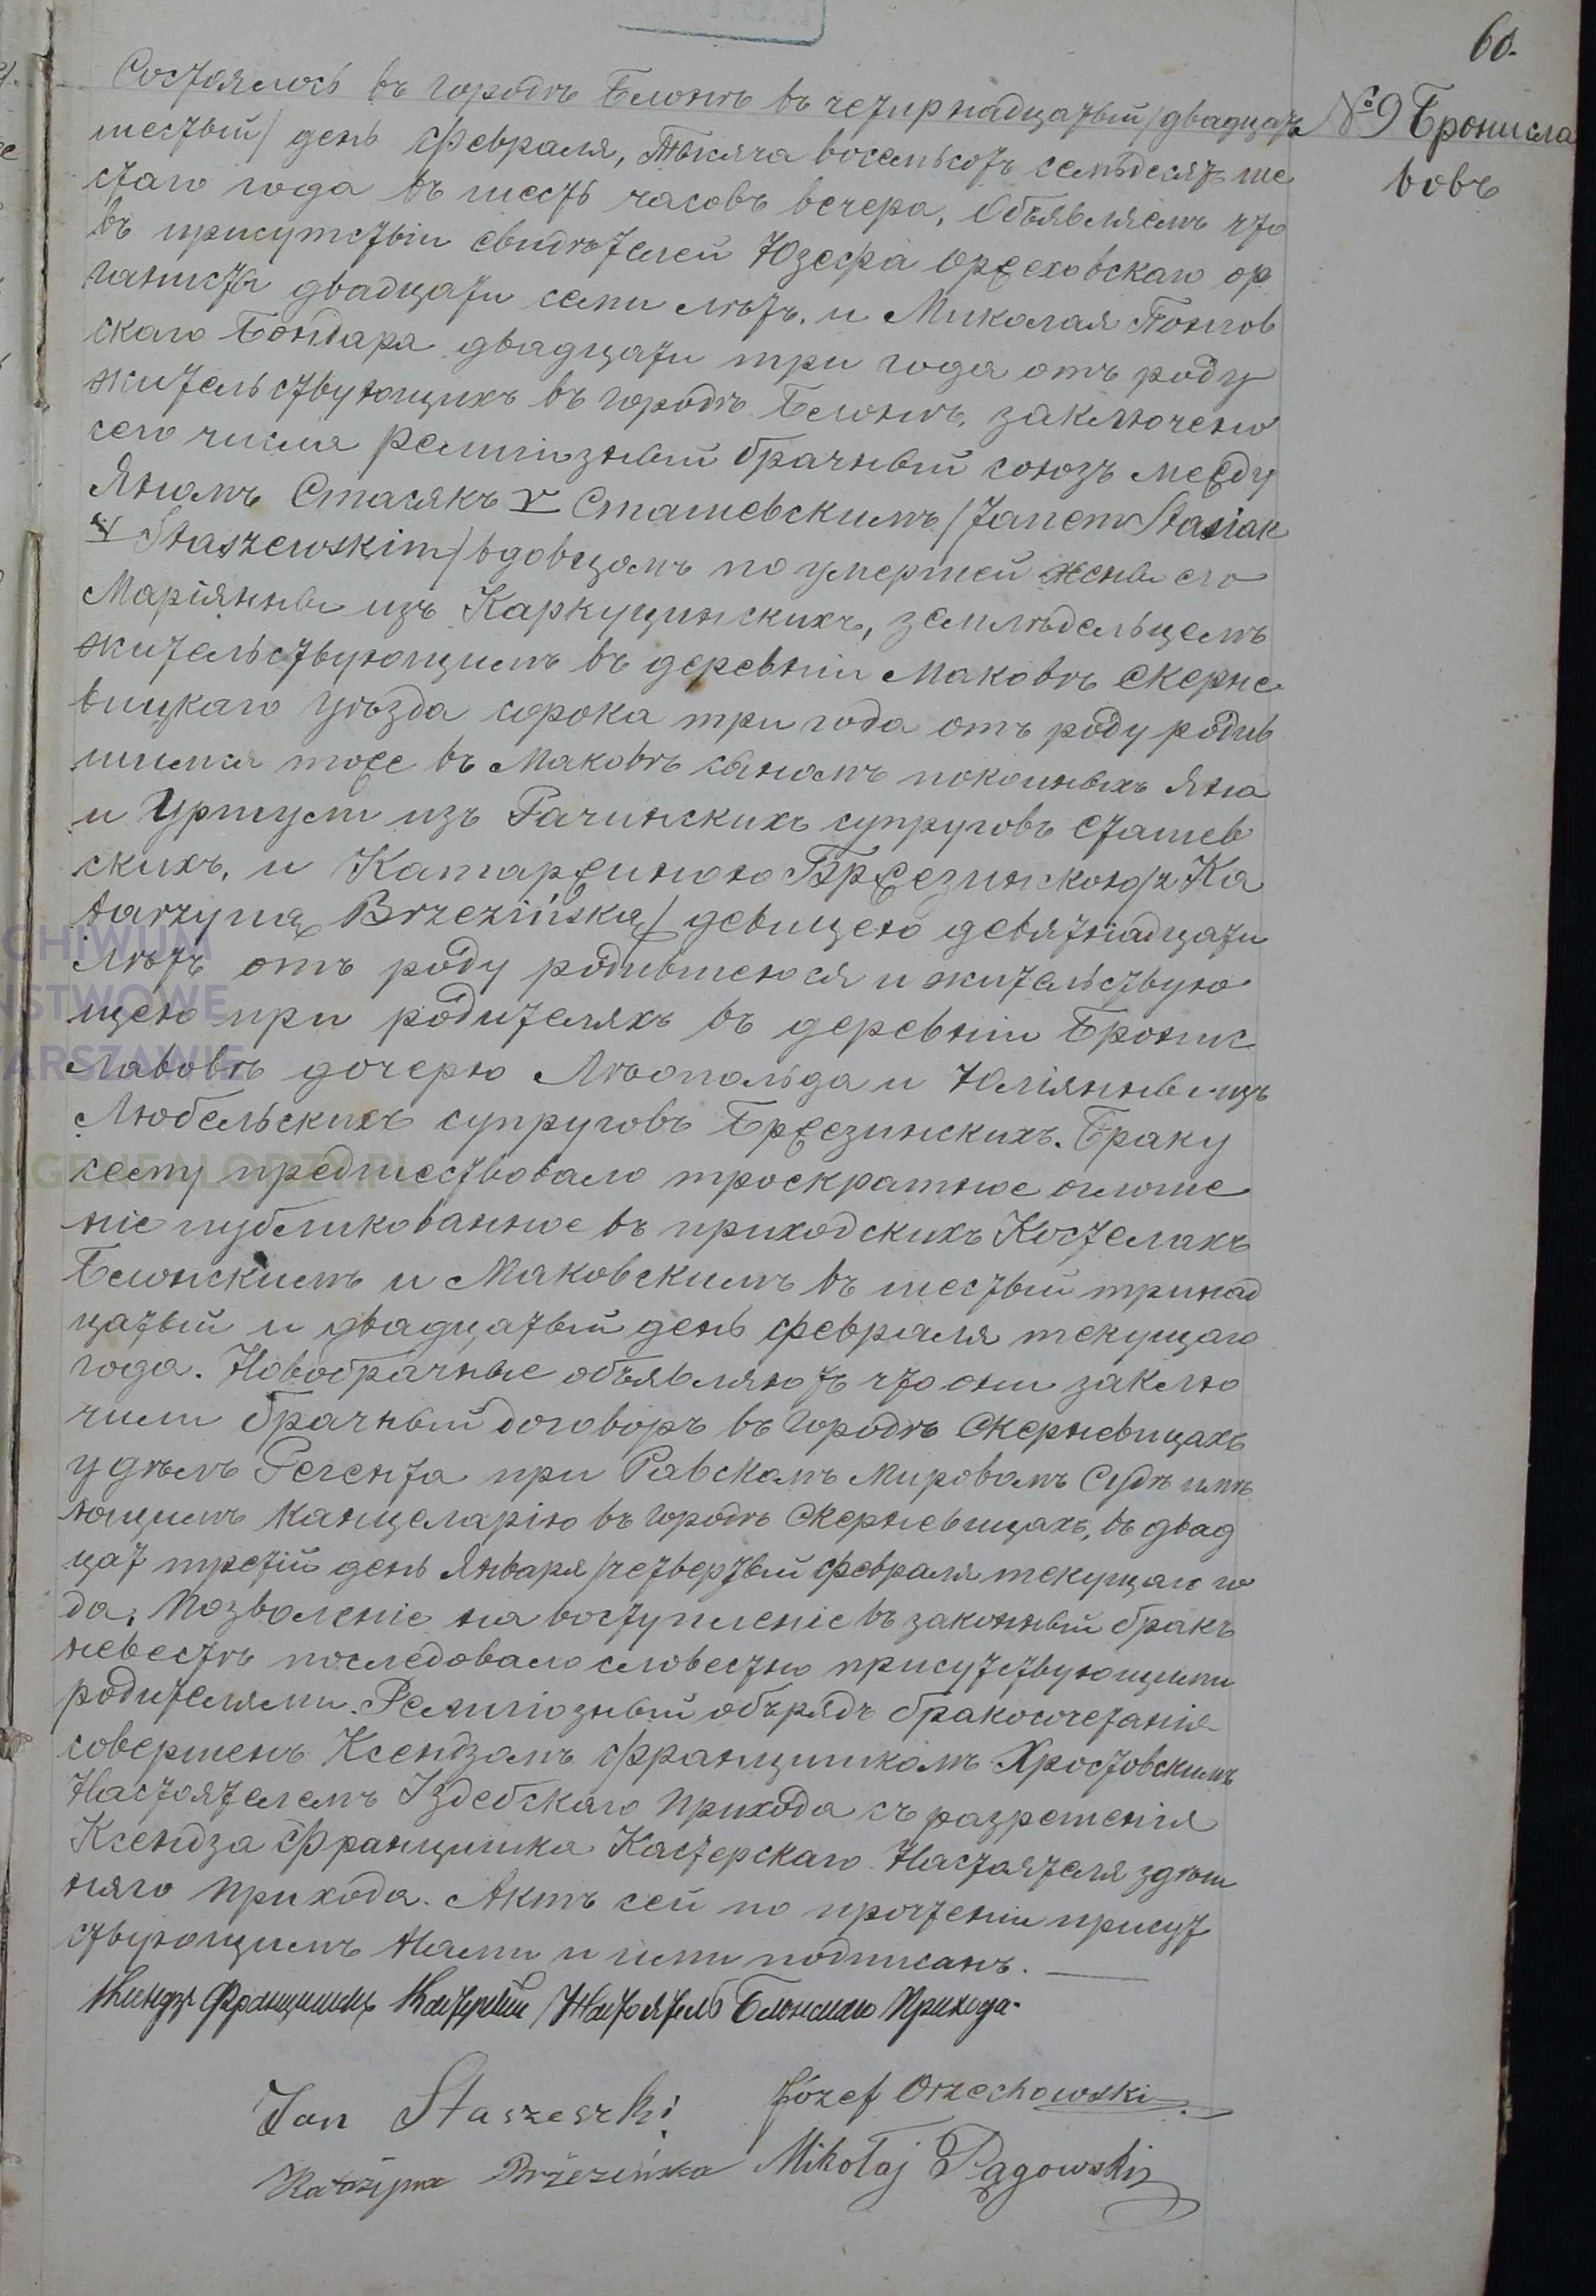 60.
№ 9 Бронисла
вовъ
Состоялось въ городѣ Блоніѣ въ четирнадцатый /двадцать
шестый/ день Февраля, Тысяча восемьсотъ семьдесятъ ше
стаго года въ шесть часовъ вечера, Объявляемъ что
въ присутствіи свидѣтелей Юзефа Оржеховскаго ор
ганисты двадцати семи лѣтъ, и Миколая Понгов
скаго Бондара двадцати три года отъ роду
жительствующихъ въ городѣ Блонѣ, заключено
сего числа Религіозный брачный союзъ между
Яномъ Стасякъ v Сташевскимъ /Janem Stasiak
v Staszewskim/ вдовцомъ по умершей жены его
Маріянны изъ Каркущинскихъ, земледѣльцемъ
жительствующимъ въ деревни Маковѣ Скерне
вицкаго Уѣзда сорока три года отъ роду родив
шимся тоже въ Маковѣ сыномъ покойныхъ Яна
и Уршули изъ Рачинскихъ супруговъ Сташев
скихъ, и Катаржиною Бржезинскою /z Ka
tarzyną Brzezińską/ девицею девятнадцати
лѣтъ отъ роду родившеюся и жительствую
щею при родителяхъ въ деревни Бронис
лавовѣ дочерю Лѣопольда и Юліянны изъ
Любельскихъ супруговъ Бржезинскихъ. Браку
сему предшествовало троекратное оглоше
ніе публикованное въ приходскихъ Костелахъ
Блонскимъ и Маковскимъ въ шестый тринад
цатый и двадцатый день Февраля текущаго
года. Новобрачные объявляютъ что они заклю
чили брачный договоръ въ городѣ Скерневицахъ
удѣлъ Регента при Равскомъ Мировомъ Судѣ имѣ
ющимъ Канцеларію въ городѣ Скерневицахъ, въ двад
цат третій день Января /четвертый Февраля текущаго го
да. Позволеніе на воступленіе въ законный бракъ
невестѣ последовало словестно присутствующими
родителями. Религіозный обърядъ бракосочетанія
совершенъ Ксендзомъ Францишкомъ Хростовскимъ
Настоятелемъ Издебскаго Прихода съ разрешенія
Ксендза Францишка Кастерскаго Настоятеля здѣш
няго Прихода. Актъ сей по прочтеніи присут
ствующимъ Нами и ими подписанъ.
Ксендзъ Францишекъ Кастерскій /Настоятель Блонскаго Прихода.
Jan Staszeszki
Józef Orzechowski
Katarzyna Brzezińska
Mikołaj Pągowski